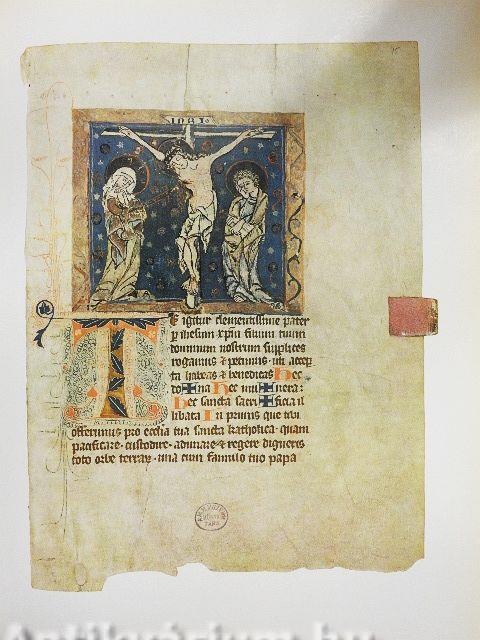 INRI
T
E igitur clementissime pater
p ihesum xpm filium tuum
dominum nostrum supplices
rogamus & petimus. uti accep
ta habeas & benedicas Hec
do✠na Hec mu✠nera:
Hec sancta sacri✠ficia il
libata In primis que tibi
offerimus pro ecclia tua sancta katholica. quam
pacificare. custodire. adunare & regere digneris
toto orbe terrar. una cum famulo tuo papa
Antikvárium.hu